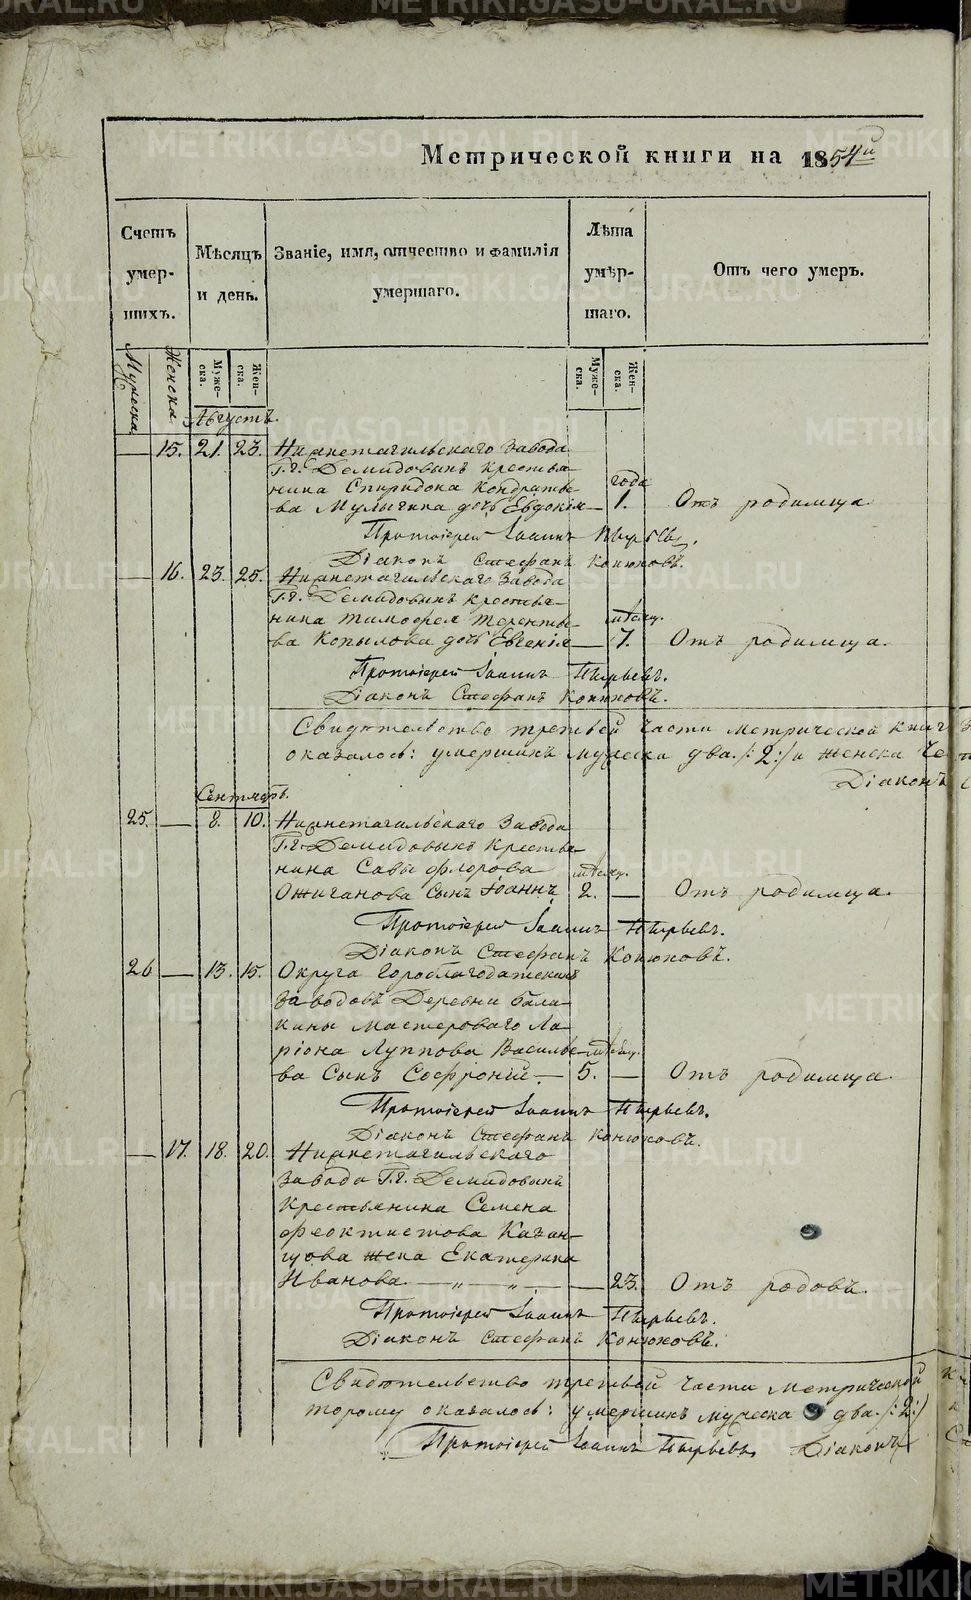 Метрической книги на 1854й
Счетъ умер-шихъ.
Мѣсяцъ и день.
Званіе, имя, отчество и фамилія умершаго.
Лѣта умѣр-шаго.
Отъ чего умеръ.
Мужеска
Женска
Муже-ска.
Жен-ска.
Муже-ска.
Жен-ска.
Августъ.
— 15. 21. 23. Нижнетагильскаго завода
Г.г. Демидовыхъ крестья-
нина Спиридона Кондратье- года
ва Мулычина дочь Евдокія — 1. Отъ родимца.
Протоіерей Іоаннъ
Діаконъ Стефанъ Конюховъ.
— 16. 23. 25. Нижнетагильскаго завода
Г.г. Демидовыхъ крестья-
нина Тимофея Теренть- мѣсяц.
ва Копылова дочь Евгенія — 7. Отъ родимца.
Протоіерей Іоаннъ
Діаконъ Стефанъ Конюховъ.
Свидѣтельство третьей части метрической книг
оказалось: умершихъ мужеска два /:2:/ и женска че
Діаконъ
Сентябрь.
25. — 8. 10. Нижнетагильскаго завода
Г.г. Демидовыхъ крестья-
нина Савы Флорова мѣсяц.
Ожиганова сынъ Іоаннъ 2. — Отъ родимца.
Протоіерей Іоаннъ
Діаконъ Стефанъ Конюховъ.
26 — 13. 15. Округа Гороблагодатскихъ
заводовъ Деревни Бала-
кины мастероваго Ла-
ріона Луппова Василье- мѣсяц.
ва сынъ Софроній — 5. — Отъ родимца.
Протоіерей Іоаннъ
Діаконъ Стефанъ Конюховъ.
— 17. 18. 20. Нижнетагильскаго
завода Г.г. Демидовыхъ
крестьянина Семена
Феоктистова Казан-
цова жена Екатерина
Иванова — „ — „ — 23. Отъ родовъ.
Протоіерей Іоаннъ
Діаконъ Стефанъ Конюховъ.
Свидѣтельство третьей части метрической
торому оказалось: умершихъ мужеска два /:2:/
Протоіерей Іоаннъ Діаконъ
METRIKI.GASO-URAL.RU